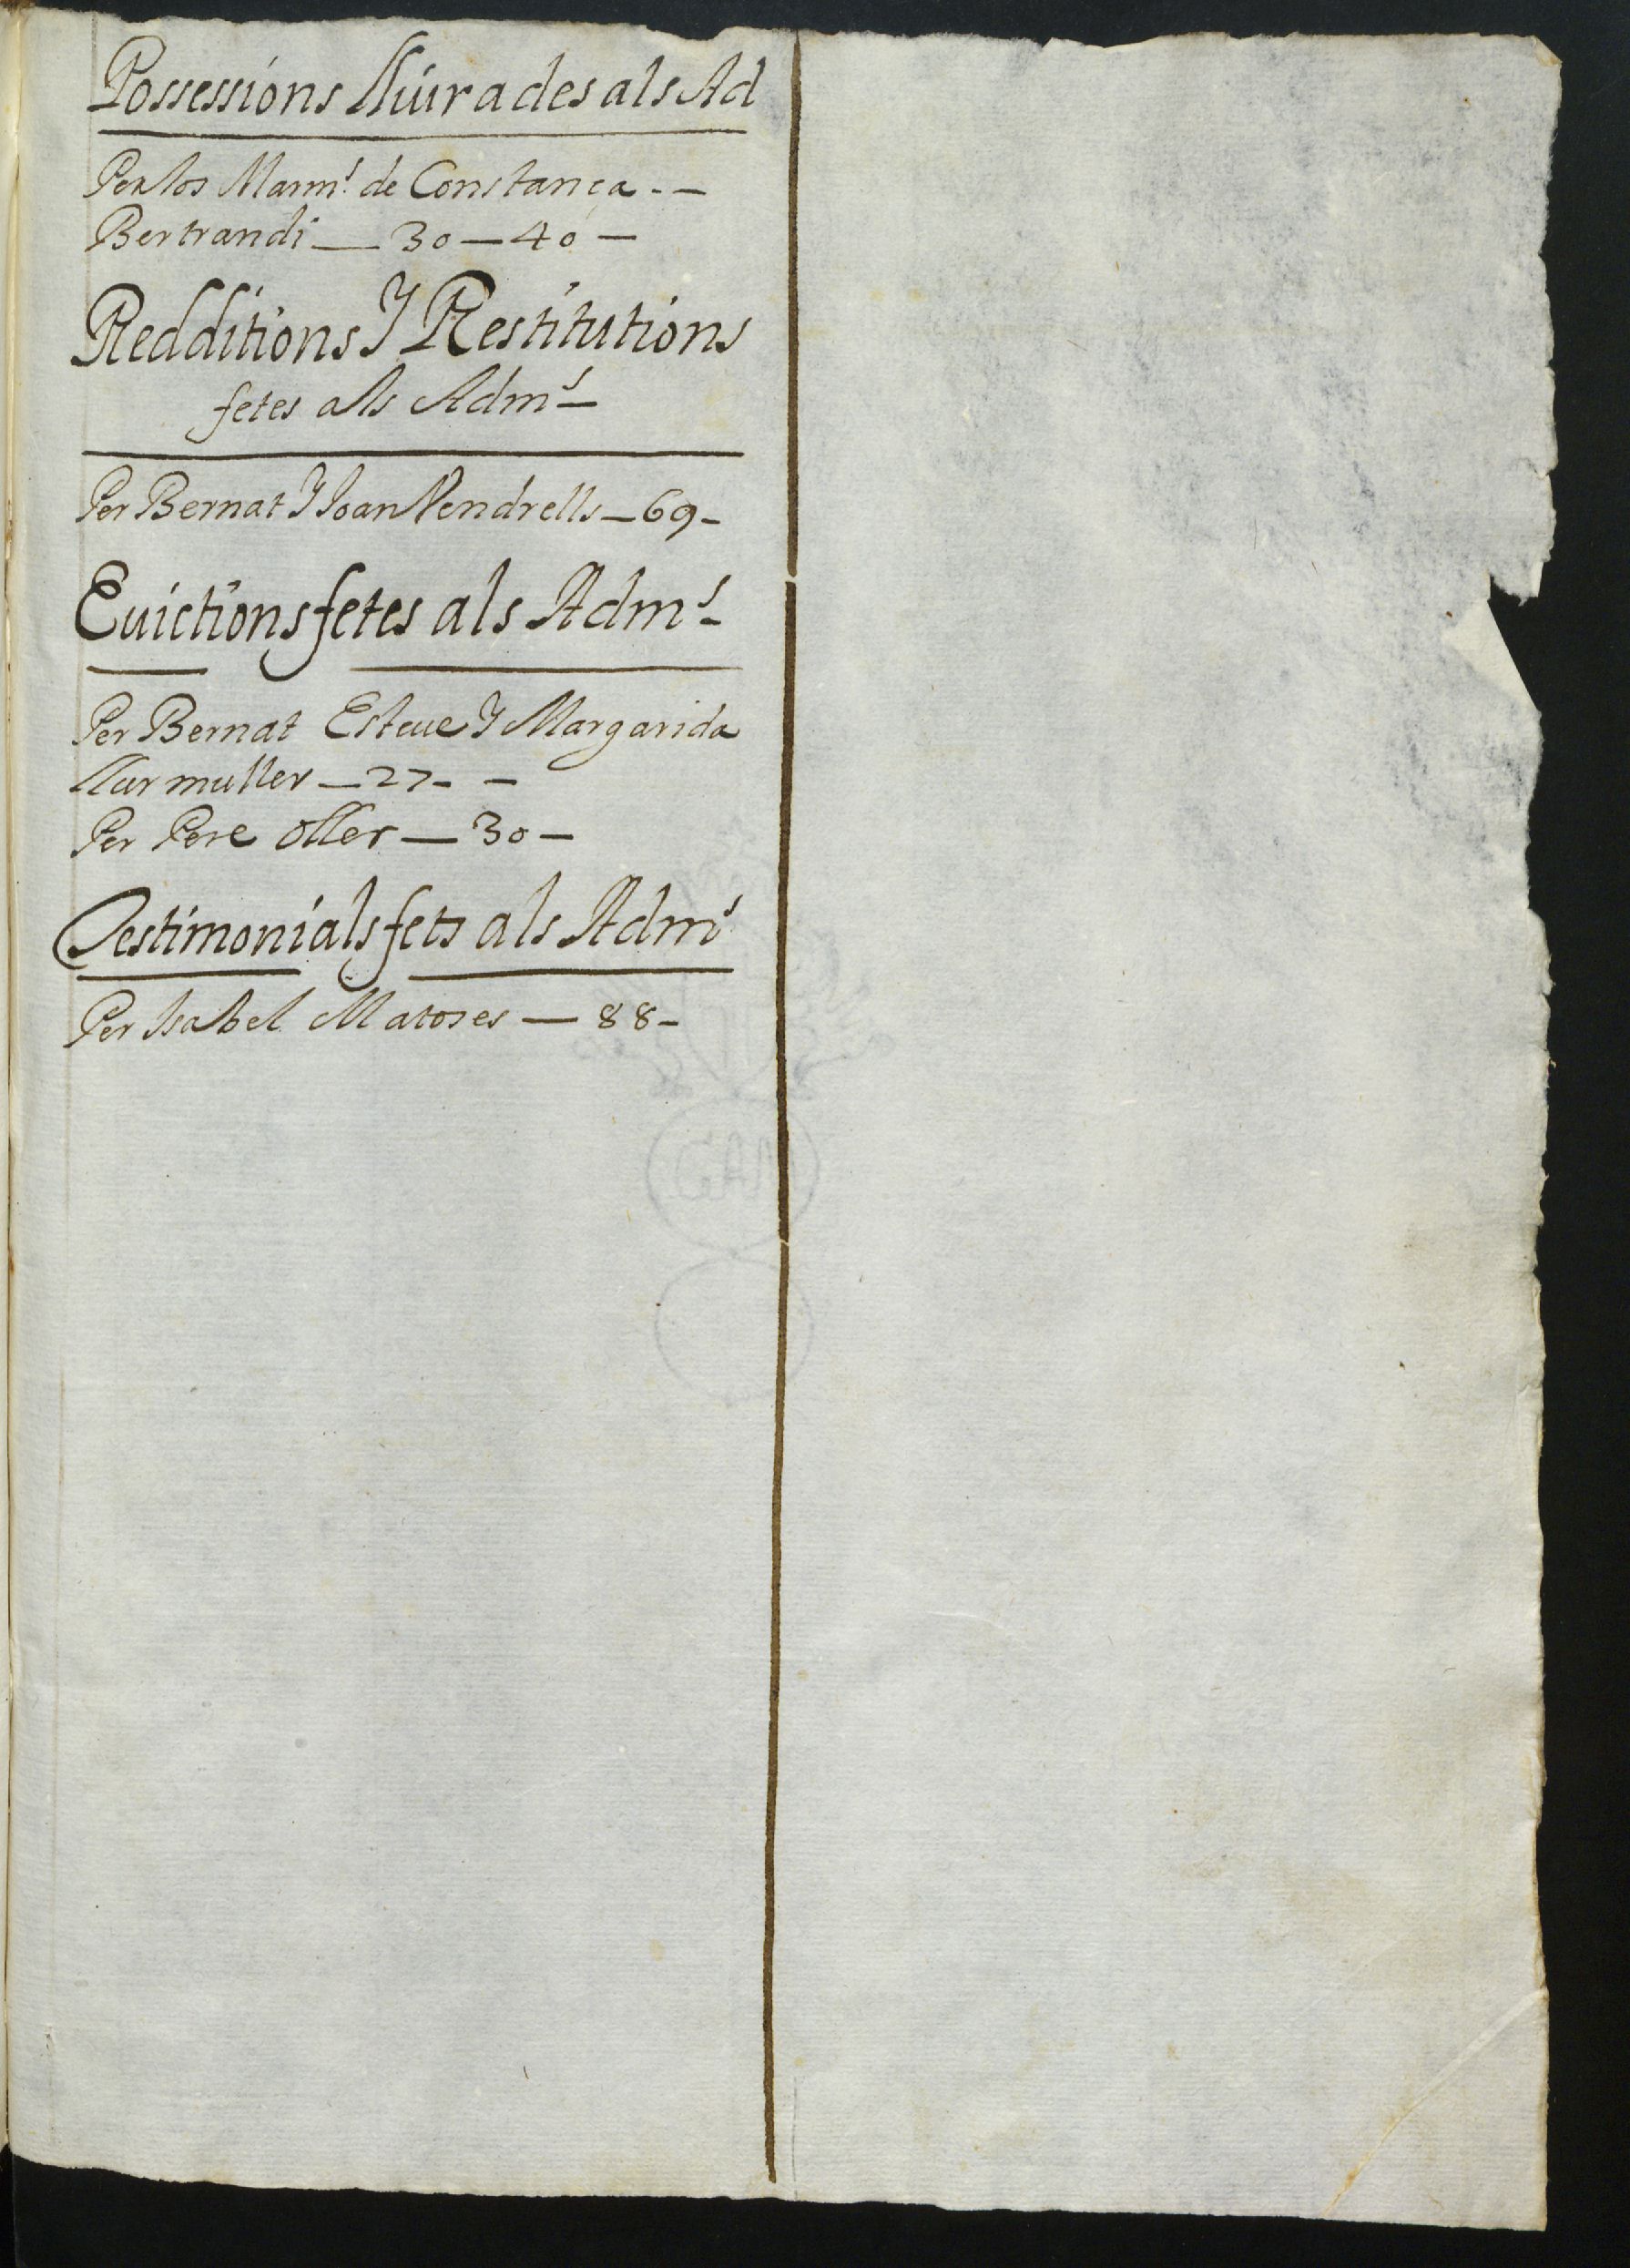 Possessions lliurades als Ad
Per los Marm.s de Constança - -
Bertrandi — 30 — 40 —
Redditions Y Restitutions
fetes als Adm.s —
Per Bernat Y Joan Vendrells — 69 -
Euictions fetes als Adm.s -
Per Bernat Esteue Y Margarida
llur muller — 27 - -
Per Pere Oller — 30 —
Testimonials fets als Adm.s
Per Isabel Matoses — 88 -